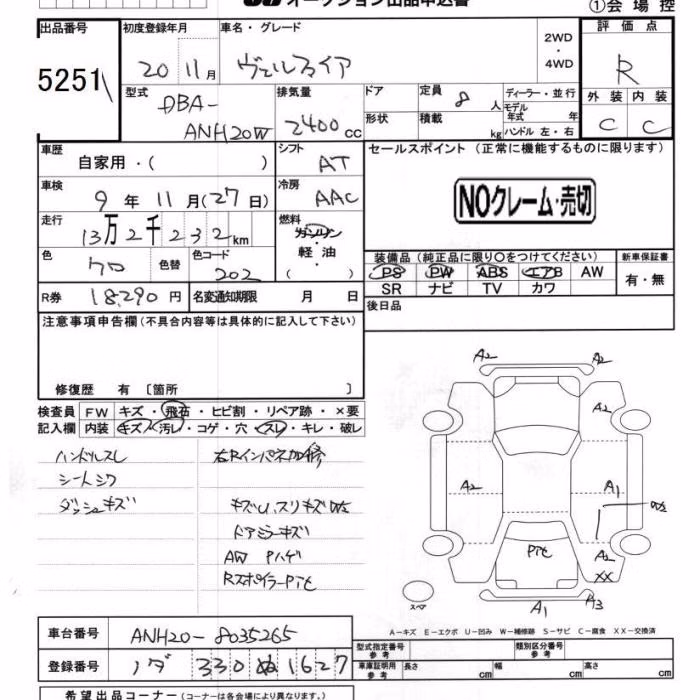 オークション出品申込書
①会場控
出品番号 初度登録年月 車名・グレード 2WD・4WD 評価点
5251 20 11月 ヴェルファイア R
型式 排気量 ドア 定員 8 人 ディーラー・並行 外装 内装
DBA- ANH20W 2400cc 形状 積載 kg モデル年式 年 ハンドル 左・右 C C
車歴 シフト セールスポイント (正常に機能するものに限ります)
自家用・( ) AT
車検 冷房
9年11月(27日) AAC NOクレーム・売切
走行 燃料
13万2千232km ガソリン・軽油
( )
色 クロ 色替 色コード 202
装備品 (純正品に限り○をつけてください) 新車保証書
PS PW ABS エアB AW 有・無
SR ナビ TV カワ
R券 18,290円 名変通知期限 月 日 後日品
注意事項申告欄(不具合内容等は具体的に記入して下さい)
修復歴 有 〔箇所 〕
検査員記入欄 FW キズ・飛石・ヒビ割・リペア跡・×要
内装 キズ・汚レ・コゲ・穴・スレ・キレ・破レ
ハンドルスレ
シートシワ
ダッシュキズ
キズUスリキズ
ドアミラーキズ
AW Pハゲ
RスポイラーPit
A2 A2
A2
A2 A1
Pit A2
XX
スペア A1 A3
A-キズ E-エクボ U-凹み W-補修跡 S-サビ C-腐食 XX-交換済
車台番号 ANH20-8035265
登録番号 330 ぬ1627
型式指定番号 参考 類別区分番号 参考
車庫証明用 参考 長さ cm 幅 cm 高さ cm
希望出品コーナー(コーナーは各会場により異なります。)